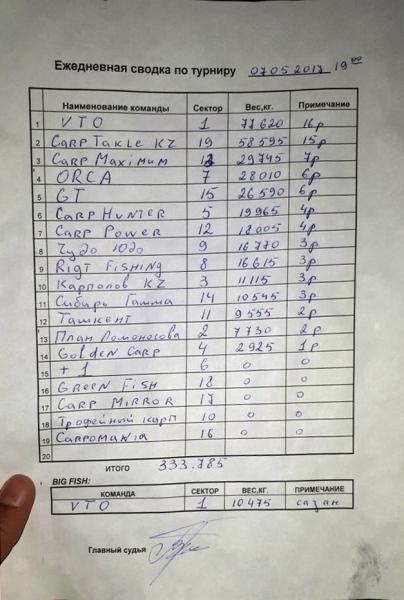 Ежедневная сводка по турниру 07.05.2017 19 00
Наименование команды Сектор Вес,кг. Примечание
1 VTO 1 77 620 16р
2 CARP TAKLE KZ 19 58 595 15р
3 CARP MAXIMUM 13 29 745 7р
4 ORCA 7 28 010 6р
5 GT 15 26 590 6р
6 CARP HUNTER 5 19 965 4р
7 CARP POWER 12 18 005 4р
8 Чудо Юдо 9 16 770 3р
9 RIGT FISHING 8 16 615 3р
10 Карполов KZ 3 11 115 3р
11 Сибирь Гамма 14 10 545 3р
12 Ташкент 11 9 555 2р
13 План Ломоносова 2 7 730 2р
14 GOLDEN CARP 4 2 925 1р
15 +1 6 0 0
16 GREEN FISH 18 0 0
17 CARP MIRROR 17 0 0
18 Трофейный карп 10 0 0
19 CARPOMANIA 16 0 0
20
ИТОГО 333.785
BIG FISH:
КОМАНДА СЕКТОР ВЕС,КГ. ПРИМЕЧАНИЕ
VTO 1 10 475 сазан
Главный судья